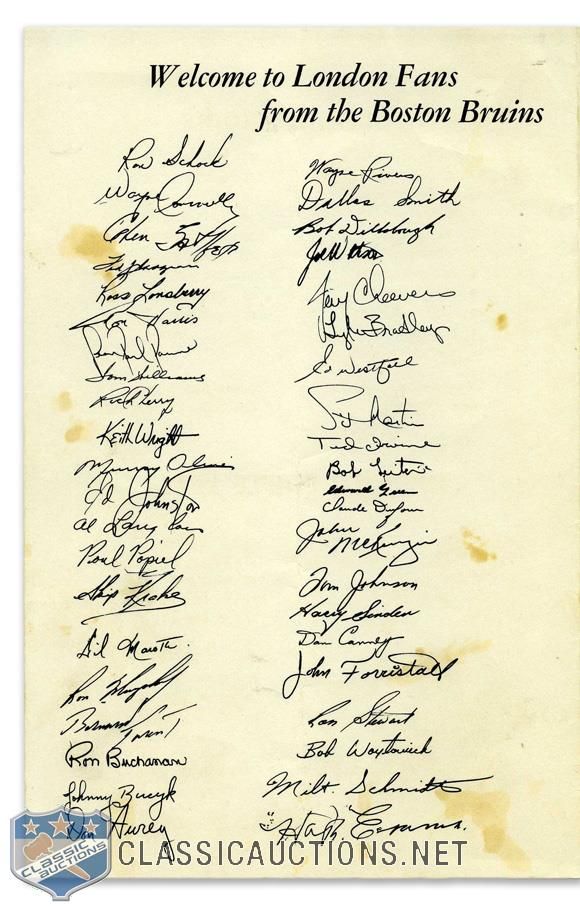 Welcome to London Fans
from the Boston Bruins
Ron Schock
Wayne Connelly
Ross Lonsberry
Ron Harris
Jean Paul Parise
Tom Williams
Keith Wright
Murray Oliver
Ed Johnston
Al Langlois
Poul Popiel
Skip Krake
Gil Marotte
Ron Murphy
Bernard Parent
Ron Buchanan
Johnny Bucyk
Don Awrey
Wayne Rivers
Dallas Smith
Bob Dillabough
Joe Watson
Gerry Cheevers
Lyle Bradley
Ed Westfall
Pit Martin
Ted Irvine
Bob
Edward Green
Claude Dufour
John McKenzie
Tom Johnson
Harry Sinden
Dan Canney
John Forristall
Ron Stewart
Bob Woytowich
Milt Schmidt
"Hap" Emms.
CLASSIC
AUCTIONS
CLASSICAUCTIONS.NET